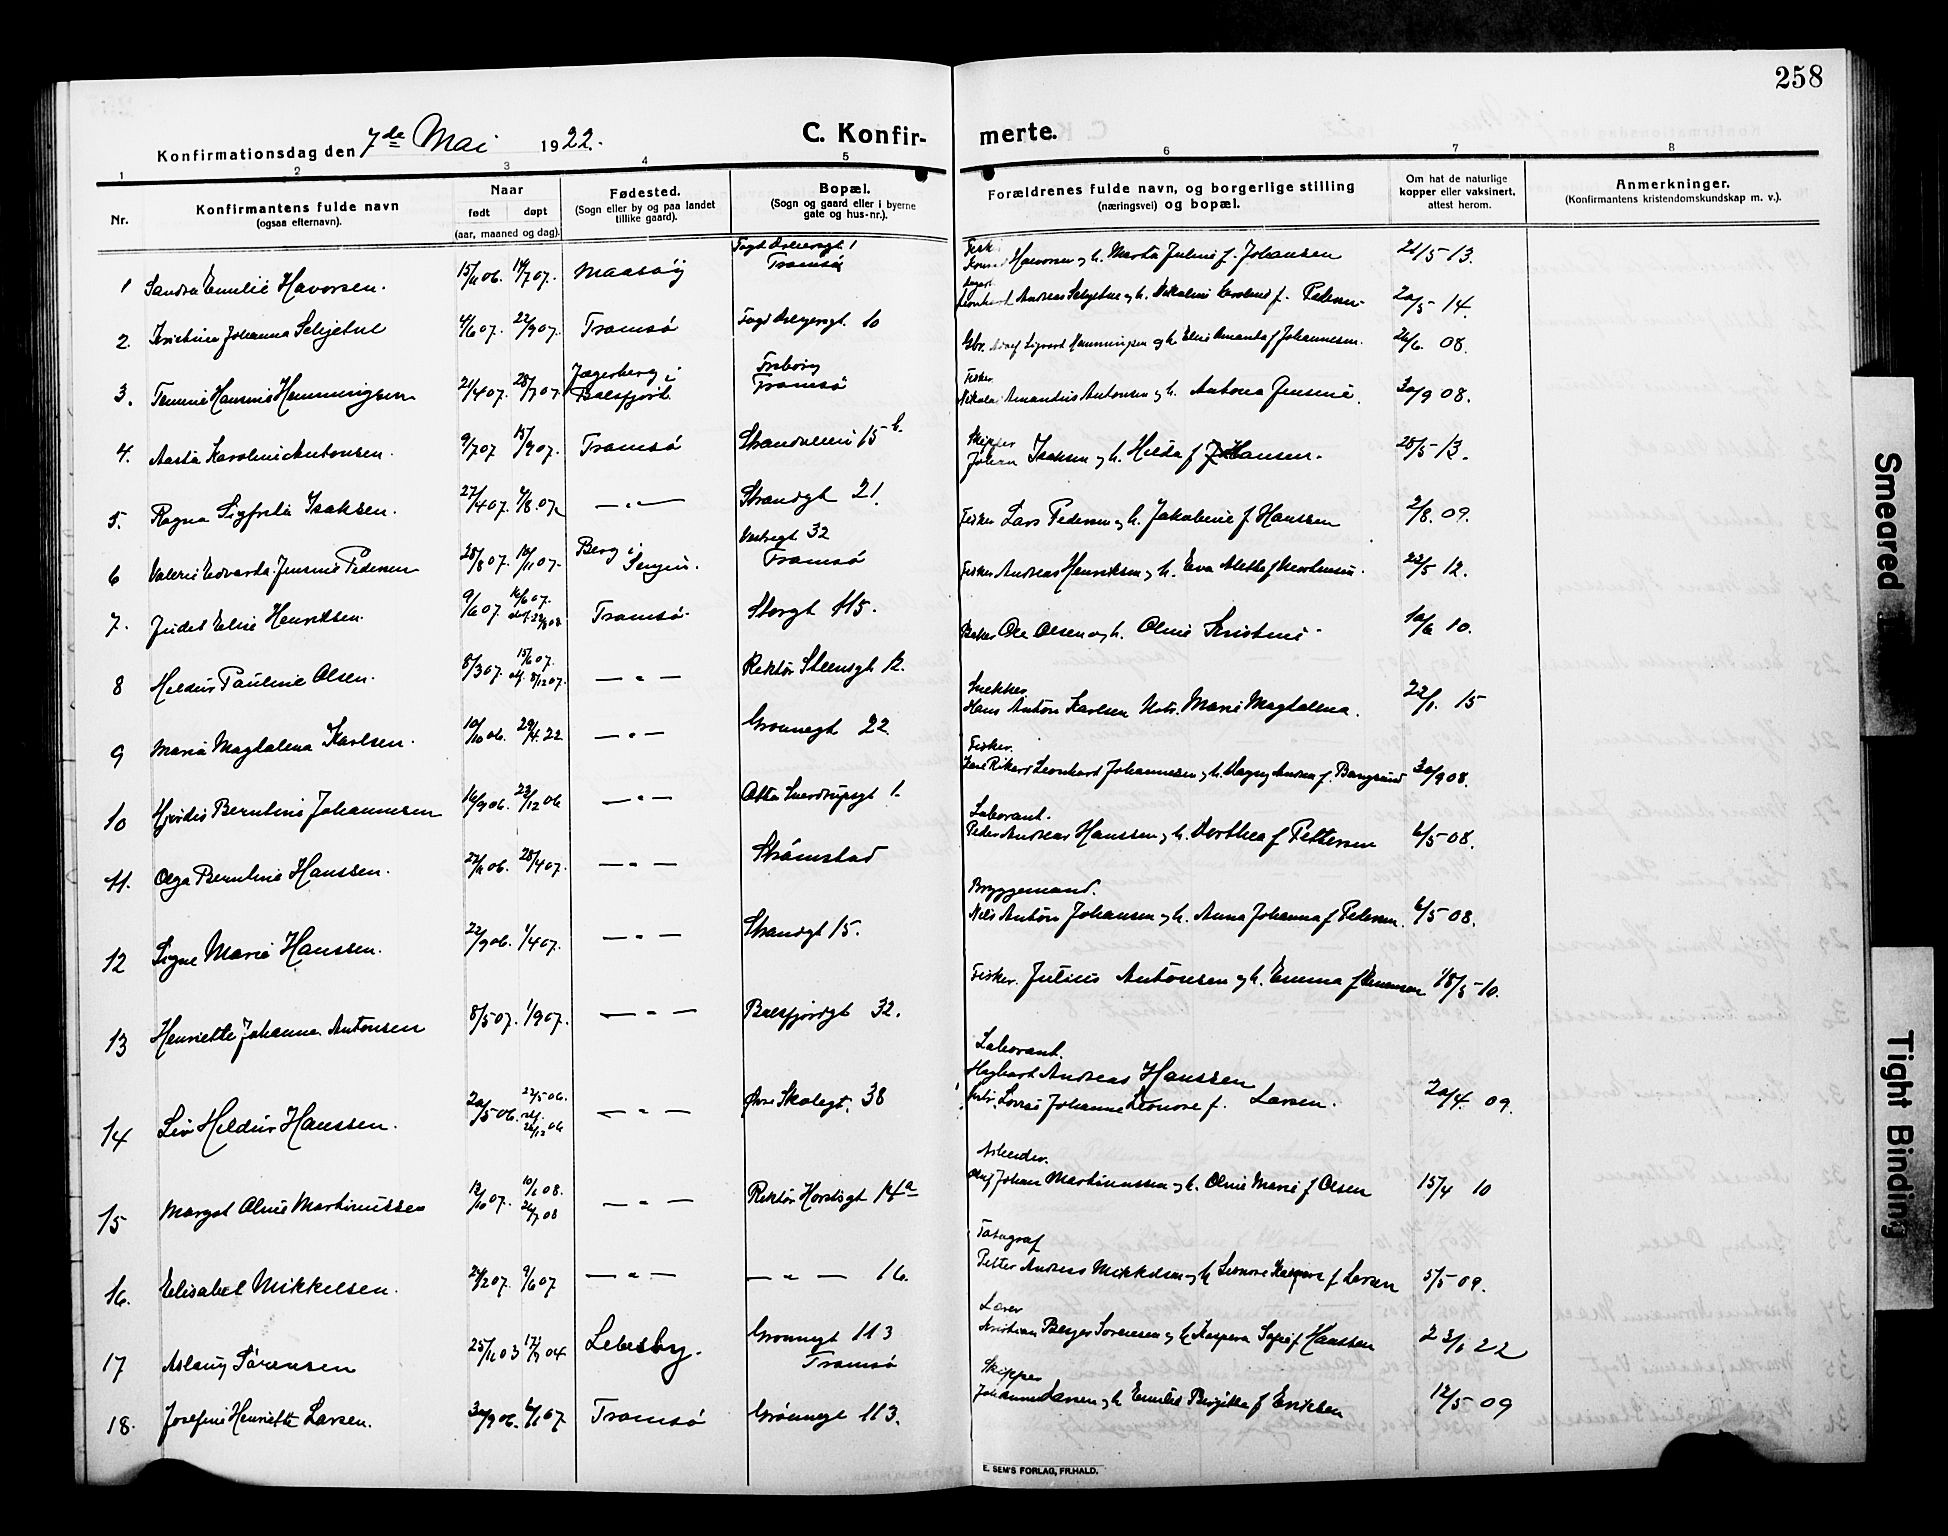 258
Konfirmationsdag den 7de Mai 1922.
C. Konfir- merte.
1 2 3 4 5 6 7 8
Nr.
Konfirmantens fulde navn
(ogsaa efternavn).
Naar
født døpt
(aar, maaned og dag).
Fødested.
(Sogn eller by og paa landet
tillike gaard).
Bopæl.
(Sogn og gaard eller i byerne
gate og hus-nr.).
Forældrenes fulde navn, og borgerlige stilling
(næringsvei) og bopæl.
Om hat de naturlige
kopper eller vaksinert,
attest herom.
Anmerkninger.
(Konfirmantens kristendomskundskap m. v.).
1 Sandra Emilie Havorsen. 15/11 06. 14/7 07. Maasøy Tromsø Halvorsen og h. Marta Juline f. Johansen 21/5-13.
2. Johanna Seljetne 4/6 07. 22/9 07. Tromsø 10 Andreas Seljetne og h. f. Pedersen 20/5-14.
3. Hansine Hemmingsen 21/4 07. 28/7 07. Jægerberg i Balsfjord. Tromsø Sigvard Hemmingsen og h. Elise Amanda f Johannesen. 26/6. 08.
4. Aasta Karoline Antonsen. 9/7 07 15/9 07. Tromsø Strandveien 15 b. Fisker Nikolai Amandus Antonsen og h. Antona Jensine. 30/9 08.
5. Ragna Sigfrida Isaksen. 27/4 07. 4/8 07. — " — Strandgt 21. Skipper Johan Isaksen og h. Hilda f Hansen. 28/5-13.
6 Valerie Edvarda Jensine Pedersen 28/8 07. 10/11 07. Berg i Senjen. Vestregt 32 Tromsø Fisker Lars Pedersen og h. Jakobine f. Hanssen 2/8. 09.
7. Judit Elise Henriksen. 9/6 07. 16/6 07. Tromsø Storgt 115. Fisker Andreas Henriksen og h. Eva Alette f 22/5 12.
8 Hildur Pauline Olsen. 8/3 07. 15/6 07. 8/12 07. — " — Rektor Steensgt 12. Ole Olsen og h. Oline Kristine 10/6 10.
9 Maria Magdalena Karlsen. 10/10 06. 29/4 22 — " — Grønnegt 22. Snekker Hans Anton Karlsen Marie Magdalena. 22/1. 15
10 Hjørdis Berntine Johannesen 16/9 06. 23/12 06 — " — Otto Sverdrupsgt 1. Fisker. Rikard Leonhard Johannesen og h. Dagny Andrea f. Bangsund 30/9 08.
11. Olga Berntine Hanssen. 22/11 06. 28/4 07. — " — Strømstad Laborant. Peder Andreas Hanssen og h. Dorthea f Pettersen 6/5 08.
12 Signe Marie Hanssen. 22/9 06. 1/4 07. — " — Strandgt 15. Bryggemand. Nils Anton Johansen og h. Anna Johanna f Pedersen. 6/5 08.
13 Henriette Johanne Antonsen 8/5 07. 1/9 07. — " — Balsfjordgt 32. Fisker. Julius Antonsen og h. Emma f 18/5-10.
14 Liv Hildur Hanssen. 20/5 06. 27/5 06. 26/12 06 — " — Øvre Skolegt. 38 Laborant. Hagbart Andreas Hanssen Johanne Leonore f. Larsen. 20/4. 09.
15 Margot Oline Martinussen 12/10 07. 10/1 08. 26/7 08 — " — Rektor Horstsgt 14a Arbeider. Olaf Johan Martinussen og h. Oline Marie f Olsen 15/4 10
16. Elisabet Mikkelsen. 24/2 07. 9/6 07 — " — — " — 16. Fotograf Petter Andreas Mikkelsen og h Leonore f Larsen 5/5 09.
17 Aslaug Sørensen 25/11 03 17/7 04 Lebesby. Grønnegt 113 Tromsø Lærer Kristian Berger Sørensen og h Kaspara Sofie f Hanssen 23/1 22
18. Josefine Henriette Larsen. 30/9 06. 6/1 07 Tromsø Grønnegt 113. Skipper Johannes Larsen og h Emilie Birgitte f Eriksen 12/5 09
E. SEM'S FORLAG, FR.HALD.
Smeared
Tight Binding